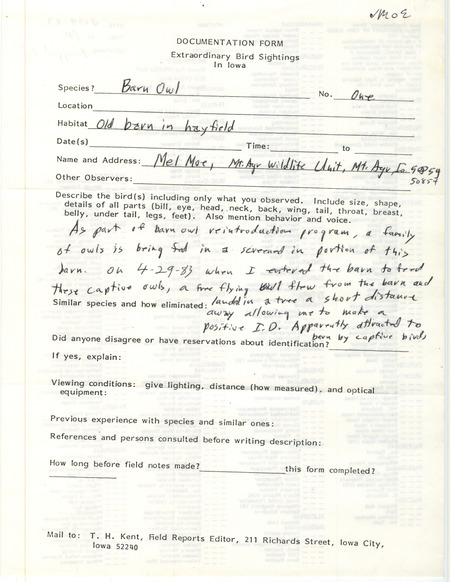 √MOE
DOCUMENTATION FORM
Extraordinary Bird Sightings
In Iowa
Species? Barn Owl No. One
Location
Habitat Old barn in hayfield
Date(s) Time: to
Name and Address: Mel Moe, Mt. Ayr Wildlife Unit, Mt. Ayr, Ia 50859
Other Observers: 50854
Describe the bird(s) including only what you observed. Include size, shape,
details of all parts (bill, eye, head, neck, back, wing, tail, throat, breast,
belly, under tail, legs, feet). Also mention behavior and voice.
As part of barn owl reintroduction program, a family
of owls is being fed in a screened in portion of this
barn. On 4-29-83 when I entered the barn to feed
these captive owls, a free flying owl flew from the barn and
Similar species and how eliminated: landed in a tree a short distance
away allowing me to make a
positive I.D. Apparently attracted to
Did anyone disagree or have reservations about identification? barn by captive birds
If yes, explain:
Viewing conditions: give lighting, distance (how measured), and optical
equipment:
Previous experience with species and similar ones:
References and persons consulted before writing description:
How long before field notes made? this form completed?
Mail to: T. H. Kent, Field Reports Editor, 211 Richards Street, Iowa City,
Iowa 52240